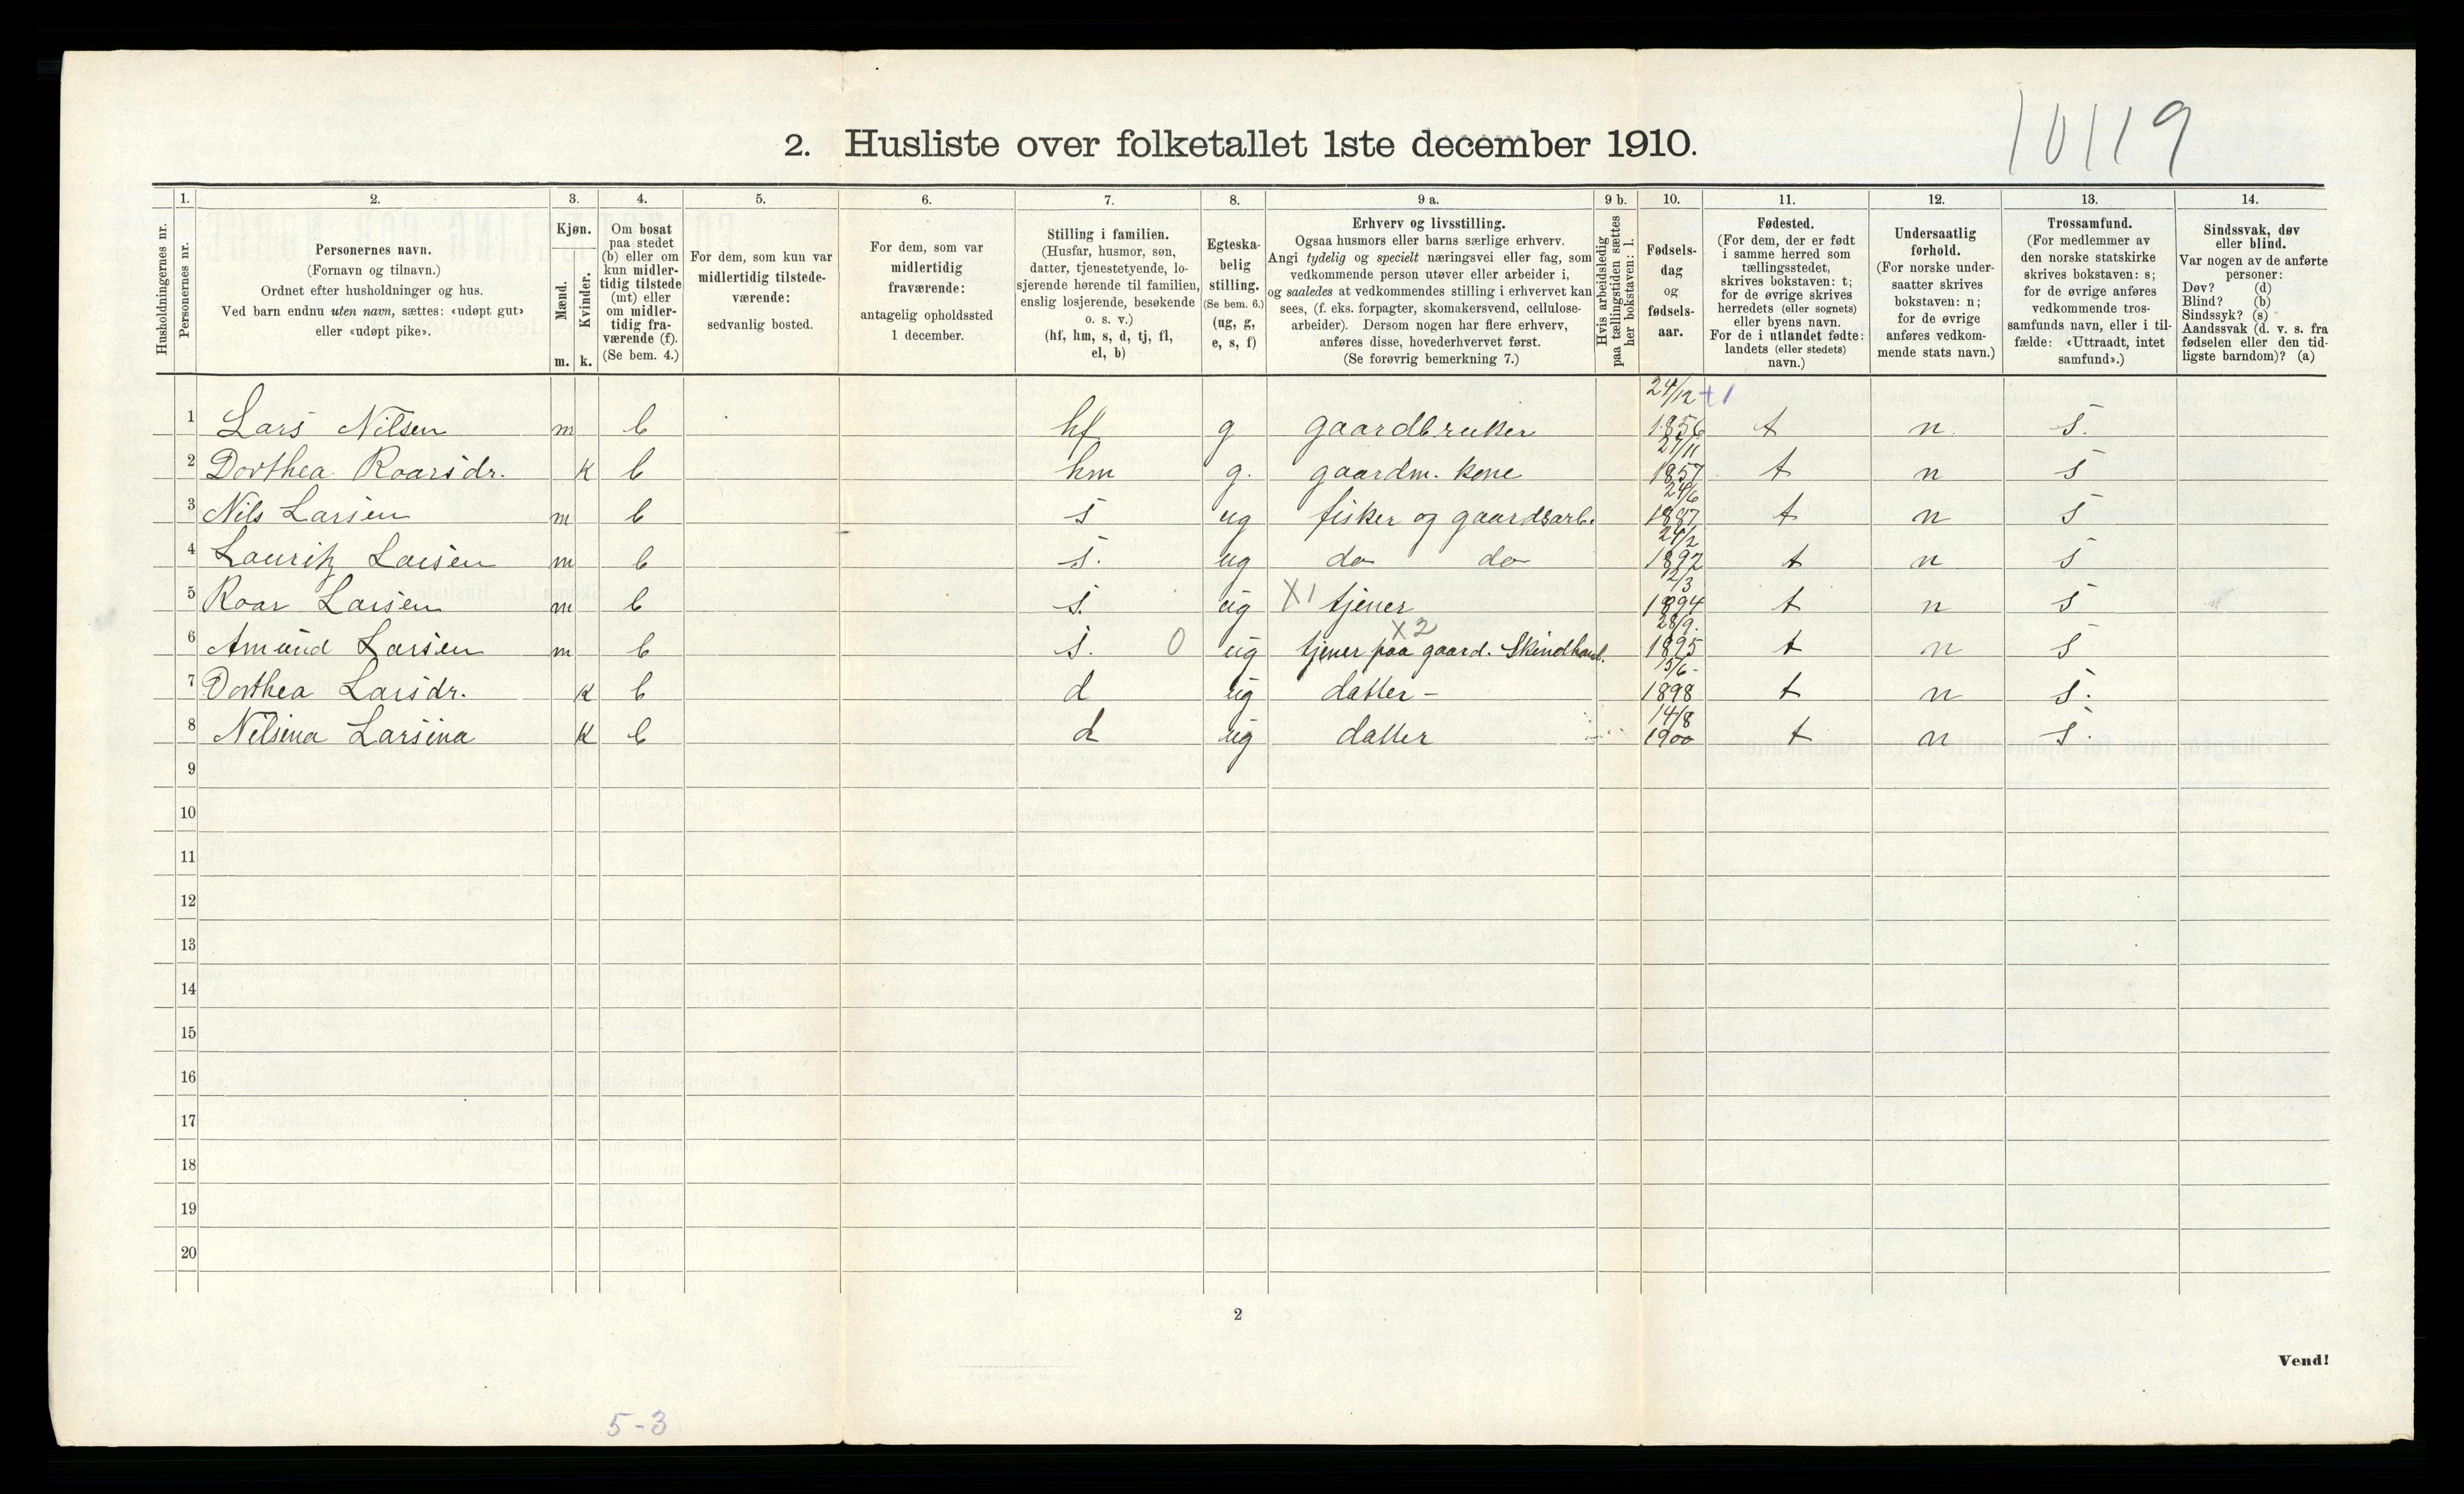 10119
2. Husliste over folketallet 1ste december 1910.
1. 2. 3. 4. 5. 6. 7. 8. 9 a. 9 b. 10. 11. 12. 13. 14.
Husholdningernes nr.
Personernes nr.
Personernes navn.
(Fornavn og tilnavn.)
Ordnet efter husholdninger og hus.
Ved barn endnu uten navn, sættes: «udøpt gut»
eller «udøpt pike».
Kjøn.
Mænd.
Kvinder.
m. k.
Om bosat
paa stedet
(b) eller om
kun midler-
tidig tilstede
(mt) eller
om midler-
tidig fra-
værende (f).
(Se bem. 4.)
For dem, som kun var
midlertidig tilstede-
værende:
sedvanlig bosted.
For dem, som var
midlertidig
fraværende:
antagelig opholdssted
1 december.
Stilling i familien.
(Husfar, husmor, søn,
datter, tjenestetyende, lo-
sjerende hørende til familien,
enslig losjerende, besøkende
o. s. v.)
(hf, hm, s, d, tj, fl,
el, b)
Egteska-
belig
stilling.
(Se bem. 6.)
(ug, g,
e, s, f)
Erhverv og livsstilling.
Ogsaa husmors eller barns særlige erhverv.
Angi tydelig og specielt næringsvei eller fag, som
vedkommende person utøver eller arbeider i,
og saaledes at vedkommendes stilling i erhvervet kan
sees, (f. eks. forpagter, skomakersvend, cellulose-
arbeider). Dersom nogen har flere erhverv,
anføres disse, hovederhvervet først.
(Se forøvrig bemerkning 7.)
Hvis arbeidsledig
paa tællingstiden sættes
her bokstaven: l.
Fødsels-
dag
og
fødsels-
aar.
Fødested.
(For dem, der er født
i samme herred som
tællingsstedet,
skrives bokstaven: t;
for de øvrige skrives
herredets (eller sognets)
eller byens navn.
For de i utlandet fødte:
landets (eller stedets)
navn.)
Undersaatlig
forhold.
(For norske under-
saatter skrives
bokstaven: n;
for de øvrige
anføres vedkom-
mende stats navn.)
Trossamfund.
(For medlemmer av
den norske statskirke
skrives bokstaven: s;
for de øvrige anføres
vedkommende tros-
samfunds navn, eller i til-
fælde: «Uttraadt, intet
samfund».)
Sindssvak, døv
eller blind.
Var nogen av de anførte
personer:
Døv? (d)
Blind? (b)
Sindssyk? (s)
Aandssvak (d. v. s. fra
fødselen eller den tid-
ligste barndom)? (a)
1 Lars Nilsen m b hf g gaardbruker 24/12 1856 +1 t n s.
2 Dorthea Roarsdr. k b hm g. gaardm. kone 27/11 1857 t n s
3 Nils Larsen m b s ug fisker og gaardsarb. 24/6 1887 t n s
4 Lauritz Larsen m b s. ug do do 24/2 1892 t n s
5 Roar Larsen m b s. ug X1 tjener 12/3 1894 t n s
6 Amund Larsen m b s. 0 ug X2 tjener paa gaard. Skindhand. 28/9. 1895 t n s
7 Dorthea Larsdr. k b d ug datter - 15/6- 1898 t n s.
8 Nelsina Larsina k b d ug datter 14/8 1900 t n s.
9
10
11
12
13
14
15
16
17
18
19
20
2
Vend!
5-3